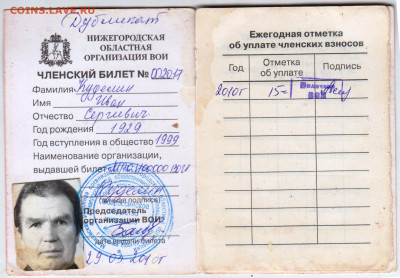 COINS.LAVE.RU
Дубликат
НИЖЕГОРОДСКАЯ
ОБЛАСТНАЯ
ОРГАНИЗАЦИЯ ВОИ
ЧЛЕНСКИЙ БИЛЕТ № 002017
Фамилия Куделин
Имя Иван
Отчество Сергеевич
Год рождения 1929
Год вступления в общество 1999
Наименование организации,
выдавшей билет
Куделин
(личная подпись)
Председатель
организации ВОИ
дата выдачи билета
29.03.2010г
Ежегодная отметка
об уплате членских взносов
Год
Отметка
об уплате
Подпись
2010г 15=
ВОИ